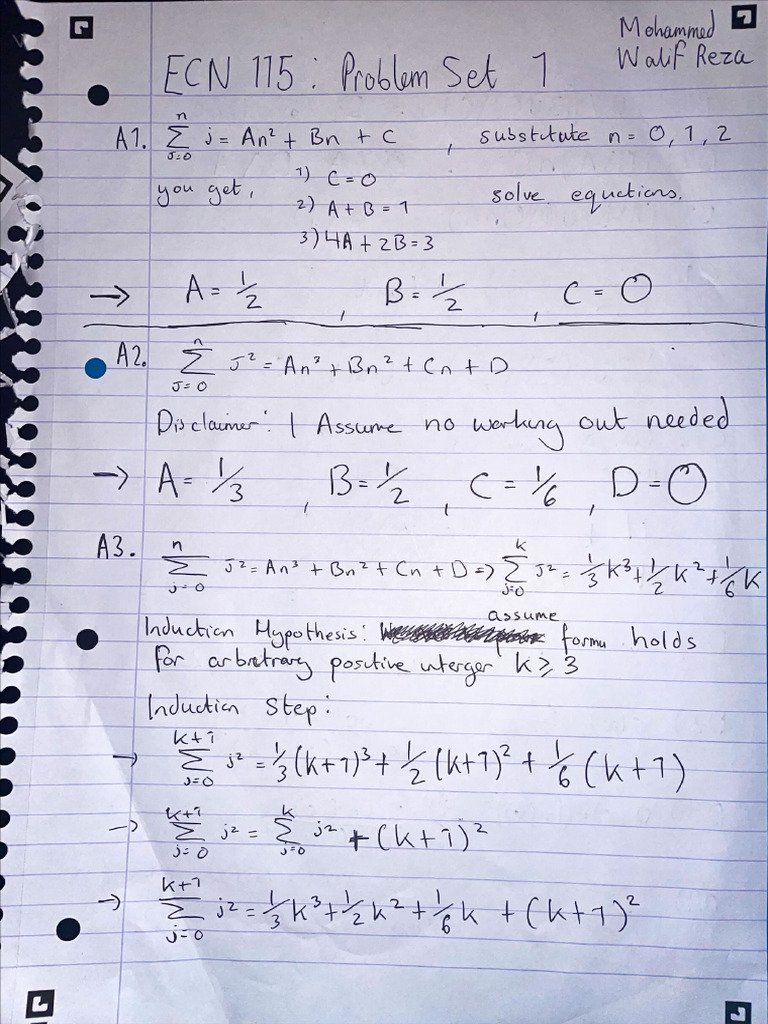 Mohammed
Walif Reza
ECN 115: Problem Set 1
A1. n Σ j=0 j = An² + Bn + C , substitute n = 0, 1, 2
you get, 1) C = 0 solve equations.
2) A + B = 1
3) 4A + 2B = 3
→ A = 1/2 , B = 1/2 , C = 0
A2. n Σ J=0 J² = An³ + Bn² + Cn + D
Disclaimer: I Assume no working out needed
→ A = 1/3 , B = 1/2 , C = 1/6 , D = 0
A3. n Σ j=0 J² = An³ + Bn² + Cn + D => k Σ j=0 J² = 1/3 k³ + 1/2 k² + 1/6 k
Induction Hypothesis: assume formu holds
for arbretrary positive interger k ⩾ 3
Induction Step:
→ k+1 Σ j=0 j² = 1/3 (k+1)³ + 1/2 (k+1)² + 1/6 (k+1)
→ k+1 Σ j=0 j² = k Σ j=0 j² + (k+1)²
→ k+1 Σ j=0 j² = 1/3 k³ + 1/2 k² + 1/6 k + (k+1)²